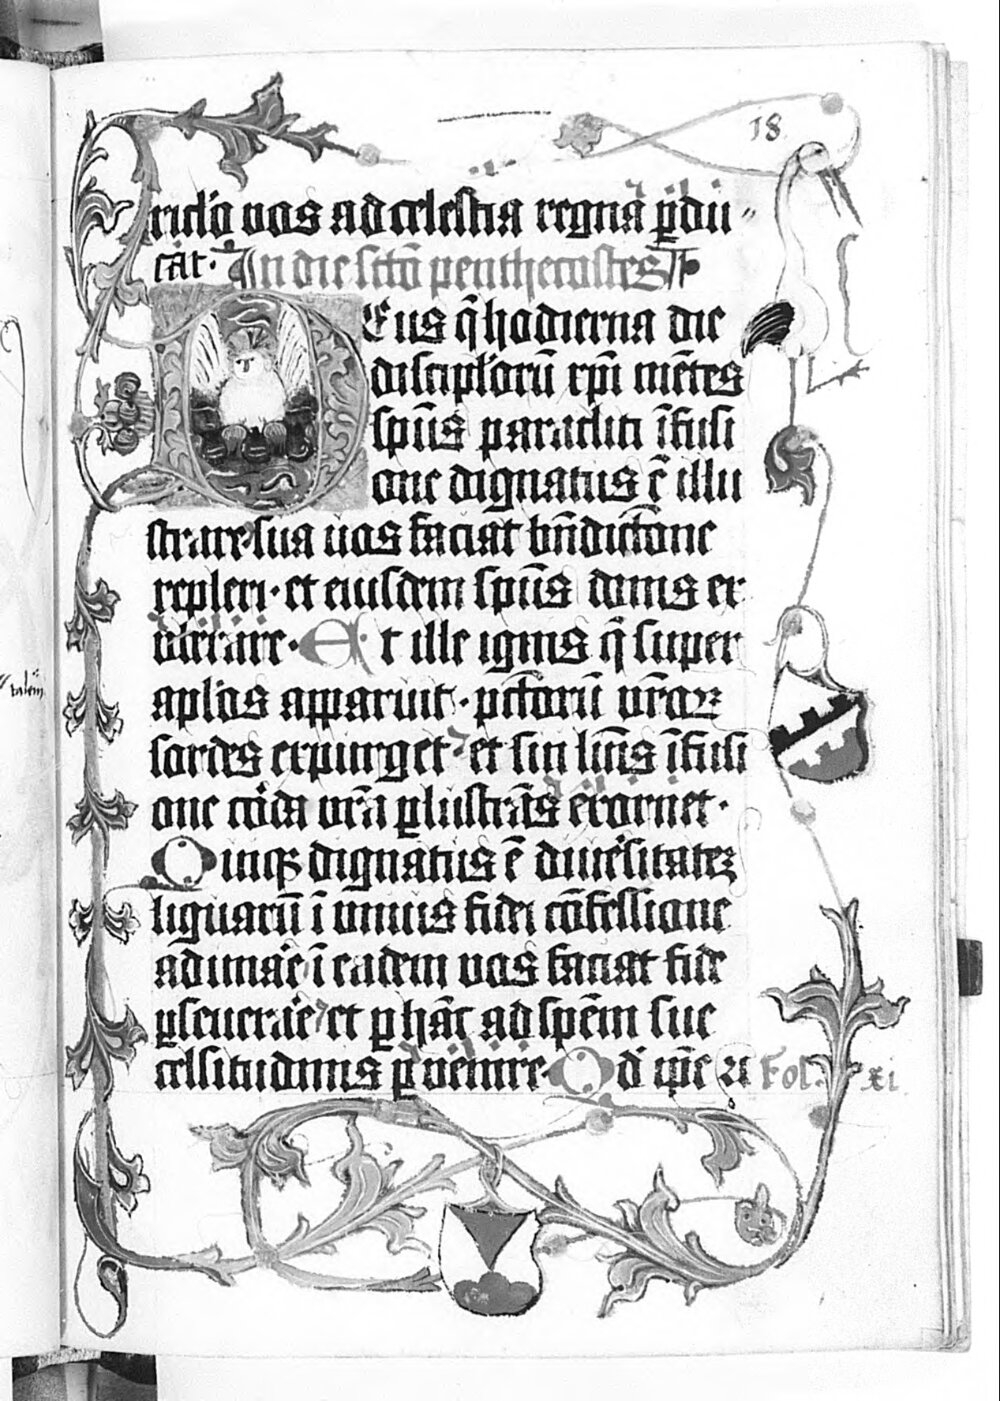 18
ricl'o vos ad celestia regna ꝑdu〃
cāt· In die sctō penthecostes
Deus q̄ hodierna die
discipl'orū xp̄i mētes
sp̄us paracliti īfusi
one dignatus ē illu
strare sua uos faciat bn̄dictōne
repleri· et eiusdem sp̄us donis ex
ul'erare· Et ille ignis q̄ super
apl'os apparuit· pctōrū vr̄oꝝ
sordes expurget et sui lūis īfusi
one cor'da vr̄a ꝑlustrās exornet·
Quiqꝫ dignatus ē diuersitatez
liguarū ī vnius fidei cōfessione
aduna'e ī eadem vos faciat fide
ꝑseuera'e et ꝑ hāc ad spēm sue
celsitudinis ꝑuenire· Qd' ip̄e
Fol. xi.